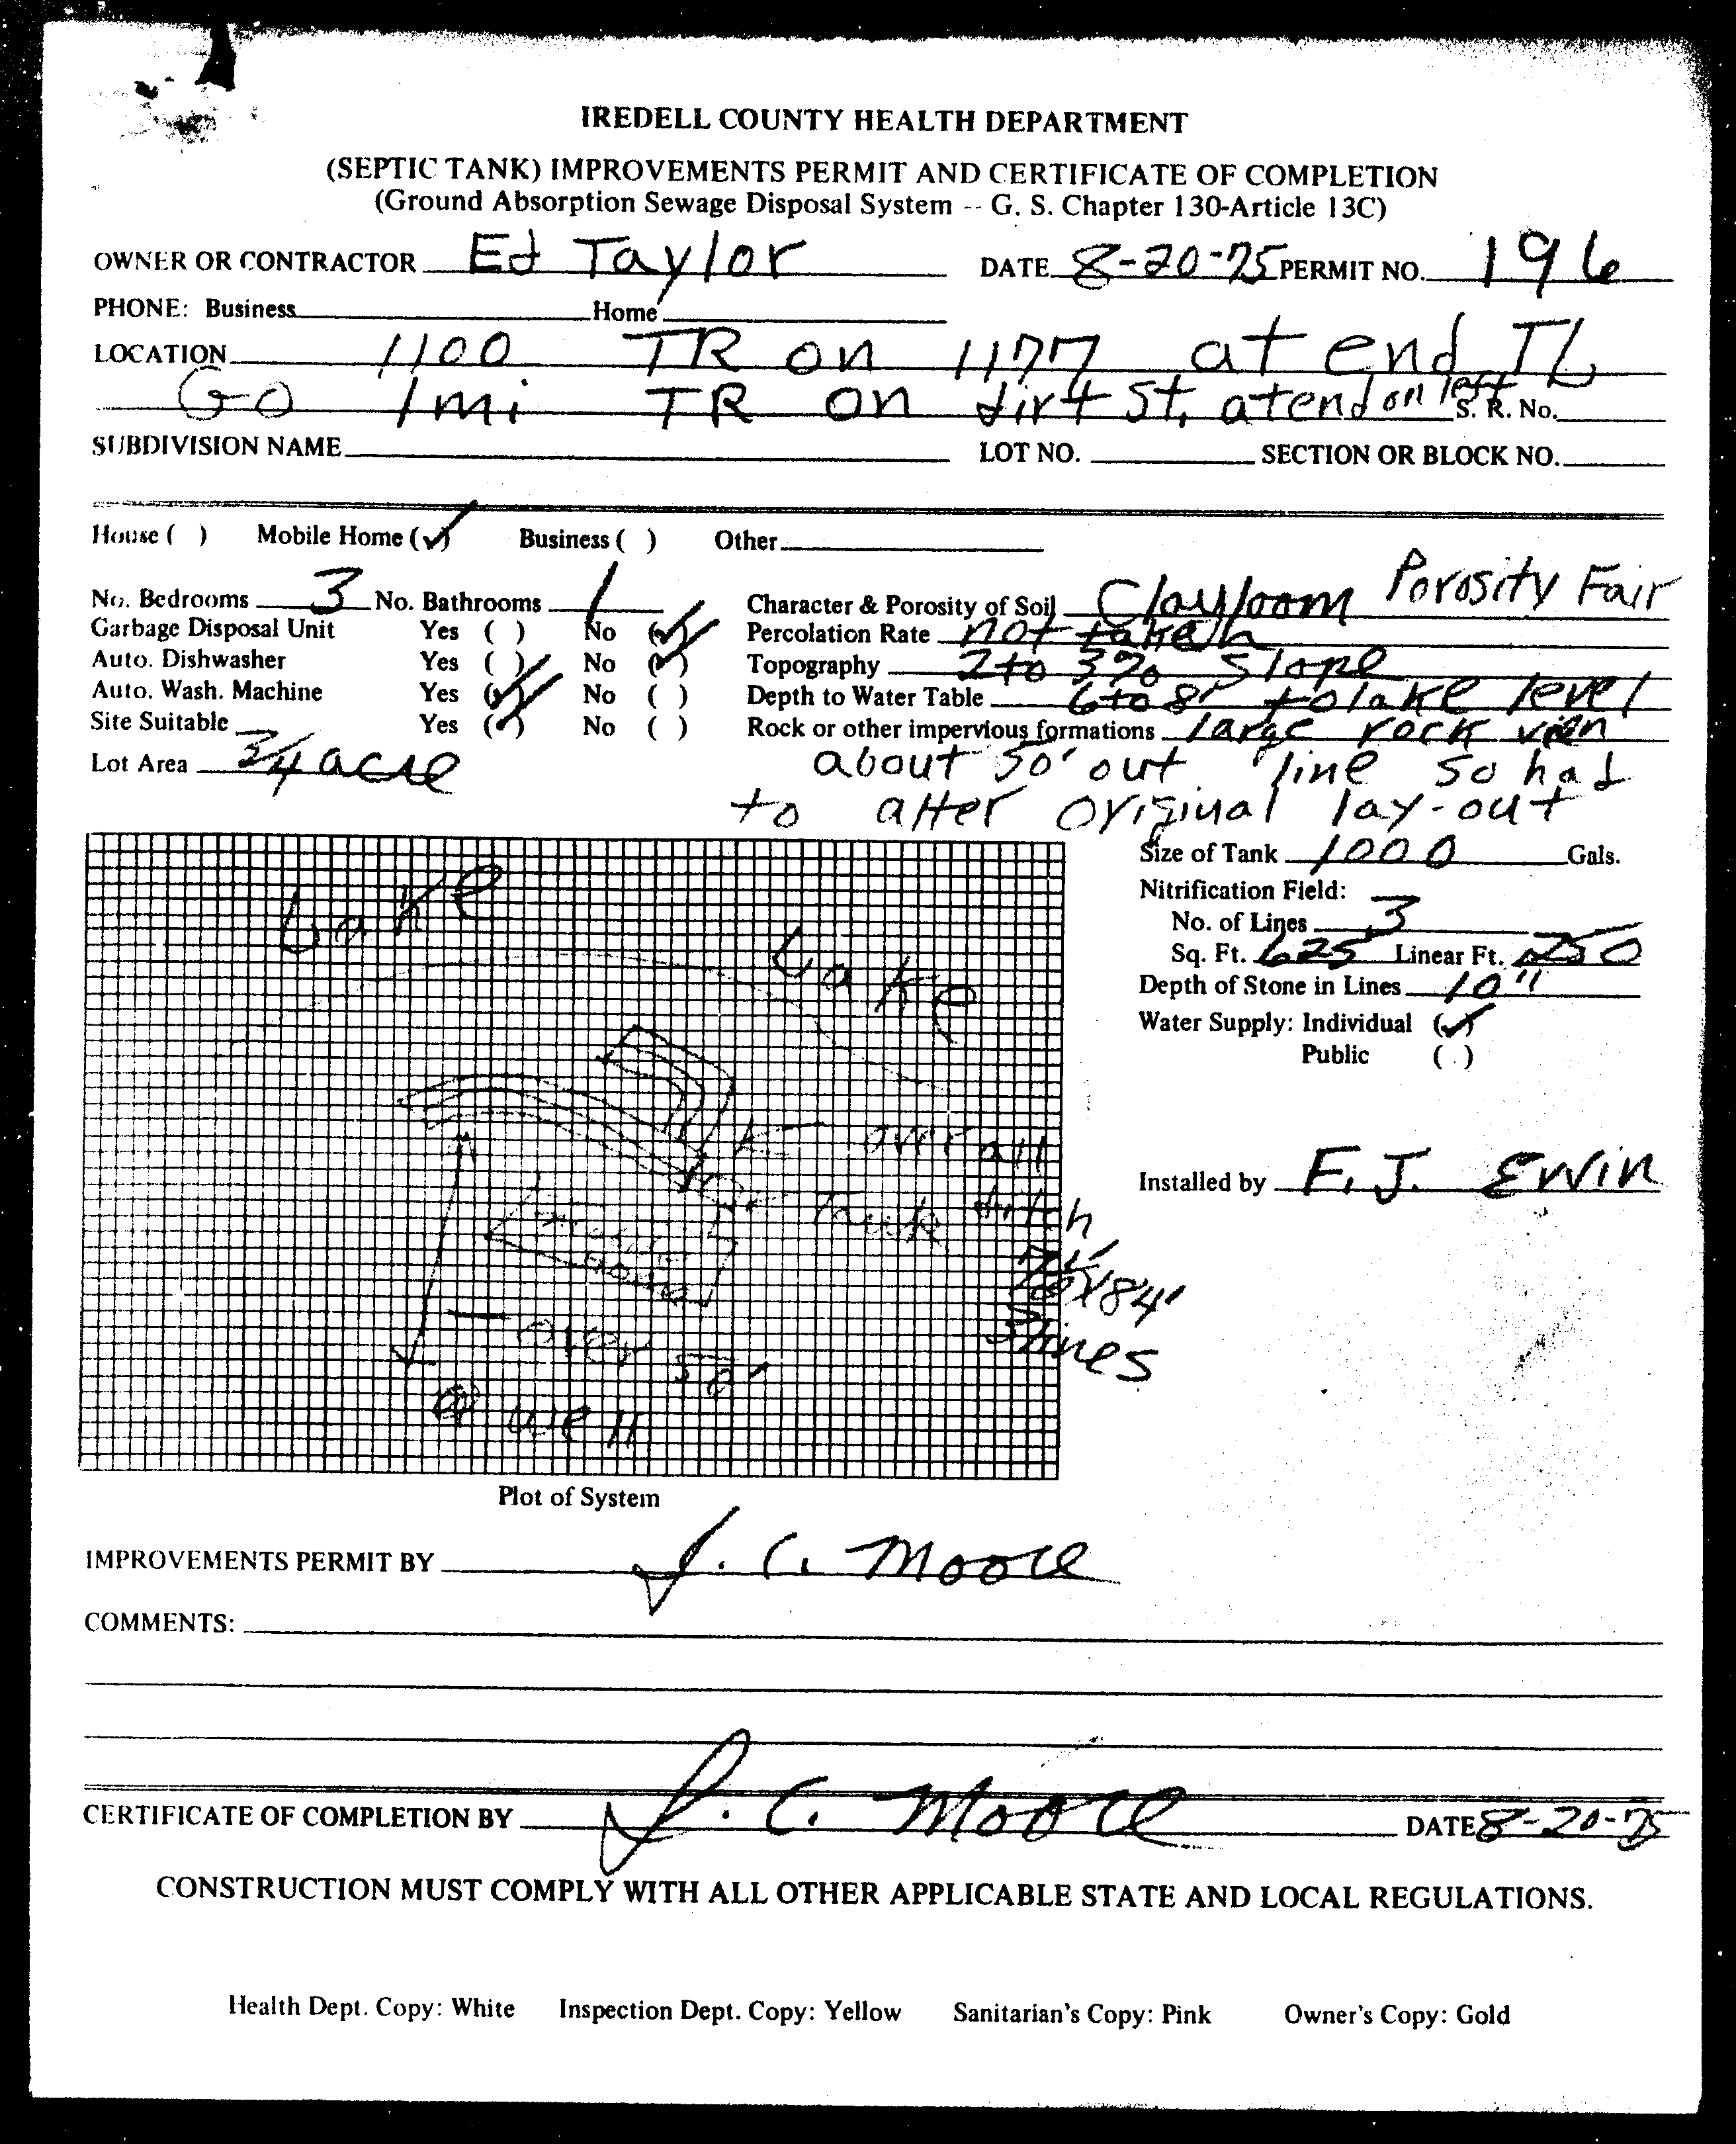 IREDELL COUNTY HEALTH DEPARTMENT
(SEPTIC TANK) IMPROVEMENTS PERMIT AND CERTIFICATE OF COMPLETION
(Ground Absorption Sewage Disposal System -- G. S. Chapter 130-Article 13C)
OWNER OR CONTRACTOR Ed Taylor DATE 8-20-75 PERMIT NO. 196
PHONE: Business Home
LOCATION 1100 TR on 1177 at end TL
Go 1 mi TR on dirt St, at end on left S. R. No.
SUBDIVISION NAME LOT NO. SECTION OR BLOCK NO.
House ( ) Mobile Home (✓) Business ( ) Other
No. Bedrooms 3 No. Bathrooms 1 Character & Porosity of Soil Clayloam Porosity Fair
Garbage Disposal Unit Yes ( ) No (✓) Percolation Rate not taken
Auto. Dishwasher Yes ( ) No (✓) Topography 2 to 3% Slope
Auto. Wash. Machine Yes (✓) No ( ) Depth to Water Table 6 to 8' to lake level
Site Suitable Yes (✓) No ( ) Rock or other impervious formations large rock vien
Lot Area 3/4 acre about 50' out line so had
to alter original lay-out
Size of Tank 1000 Gals.
Nitrification Field:
No. of Lines 3
Sq. Ft. 625 Linear Ft. 250
Depth of Stone in Lines 10"
Water Supply: Individual (✓)
Public ( )
Installed by F. J. Ervin
Lake
Lake
overall
Tank ditch
X84'
3 lines
over 50'
well
Plot of System
IMPROVEMENTS PERMIT BY J. C. Moore
COMMENTS:
CERTIFICATE OF COMPLETION BY J. C. Moore DATE 8-20-75
CONSTRUCTION MUST COMPLY WITH ALL OTHER APPLICABLE STATE AND LOCAL REGULATIONS.
Health Dept. Copy: White Inspection Dept. Copy: Yellow Sanitarian's Copy: Pink Owner's Copy: Gold